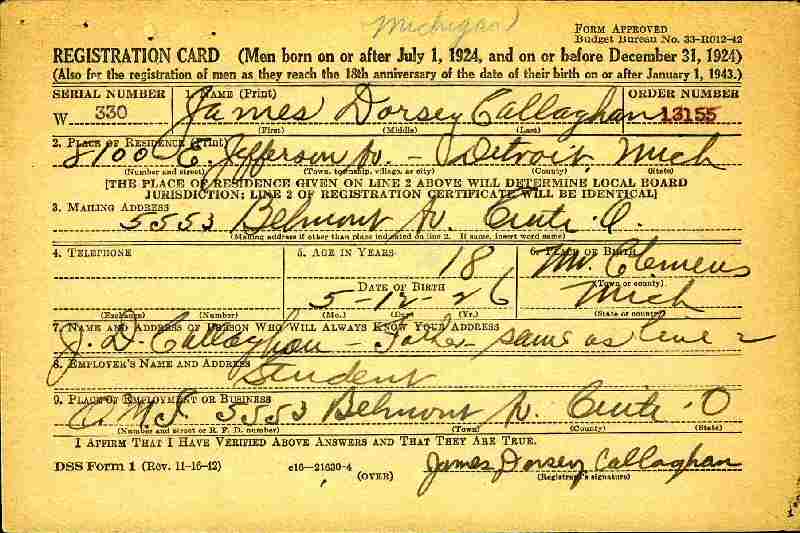 Michigan
FORM APPROVED
Budget Bureau No. 33-R012-42
REGISTRATION CARD (Men born on or after July 1, 1924, and on or before December 31, 1924)
(Also for the registration of men as they reach the 18th anniversary of the date of their birth on or after January 1, 1943.)
SERIAL NUMBER 1. NAME (Print) ORDER NUMBER
W 330 James Dorsey Callaghan 13155
(First) (Middle) (Last)
2. PLACE OF RESIDENCE (Print)
8100 E. Jefferson Av. - Detroit, Mich
(Number and street) (Town, township, village, or city) (County) (State)
[THE PLACE OF RESIDENCE GIVEN ON LINE 2 ABOVE WILL DETERMINE LOCAL BOARD
JURISDICTION; LINE 2 OF REGISTRATION CERTIFICATE WILL BE IDENTICAL]
3. MAILING ADDRESS
5553 Belmont Av. O.
(Mailing address if other than place indicated on line 2. If same, insert word same)
4. TELEPHONE 5. AGE IN YEARS 6. PLACE OF BIRTH
18 Mt. Clemens
DATE OF BIRTH (Town or county)
5-12-26 Mich
(Exchange) (Number) (Mo.) (Day) (Yr.) (State or country)
7. NAME AND ADDRESS OF PERSON WHO WILL ALWAYS KNOW YOUR ADDRESS
J. D. Callaghan - Father - same as line 2
8. EMPLOYER'S NAME AND ADDRESS
Student
9. PLACE OF EMPLOYMENT OR BUSINESS
5553 Belmont Av. O
(Number and street or R. F. D. number) (Town) (County) (State)
I AFFIRM THAT I HAVE VERIFIED ABOVE ANSWERS AND THAT THEY ARE TRUE.
DSS Form 1 (Rev. 11-16-42) c16-21630-4 (OVER) James Dorsey Callaghan
(Registrant's signature)